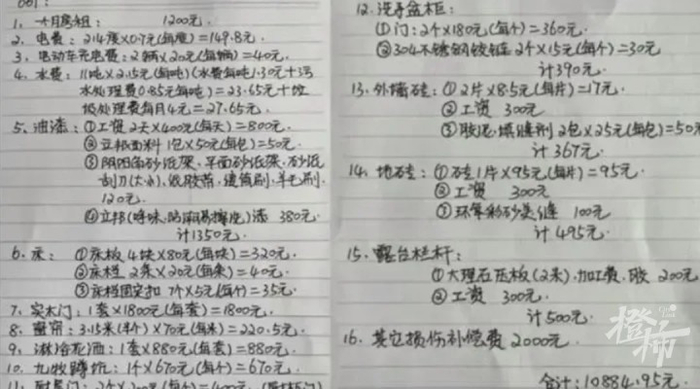 1、十月房租：1200元.
2、电费：214度×0.7元(每度)=149.8元.
3、电动车充电费：2辆×20元(每辆)=40元.
4、水费：11吨×2.15元(每吨)(水费每吨1.30元+污
水处理费0.85元每吨)=23.65元+垃
圾处理费每月4元=27.65元.
5、油漆：①工资2天×400元(每天)=800元.
②立邦面料 1包×50元(每包)=50元.
③阴阳角砂纸架、平面砂纸架、砂纸
刮刀(大小)、纸胶带、滚筒刷、羊毛刷.
120元.
④立邦 漆 380元.
计1350元.
6、床：①床板4块×80元(每块)=320元.
②床档2条×20元(每条)=40元.
③床档固定扣 7个×5元(每个)=35元.
7、实木门：1套×1800元(每套)=1800元.
8、窗帘：3.15米×70元(每米)=220.5元.
9、淋浴花洒：1套×880元(每套)=880元.
10、九牧蹲坑：1个×670元(每个)=670元.
12.洗手盆柜：
①门：2个×180元(每个)=360元.
②304不锈钢铰链 2个×15元(每个)=30元
计390元.
13、外墙砖：①2片×8.5元(每片)=17元.
②工资 300元.
③胶泥、填缝剂 2包×25元(每包)=50元
计367元.
14、地砖：①砖1片×95元(每片)=95元.
②工资 300元
③环氧彩砂美缝 100元
计495元.
15、露台栏杆：
①大理石压板(2米).加工费、胶 200元
②工资 300元.
计500元.
16、其它损伤补偿费 2000元.
合计：10884.95元.
橙柿